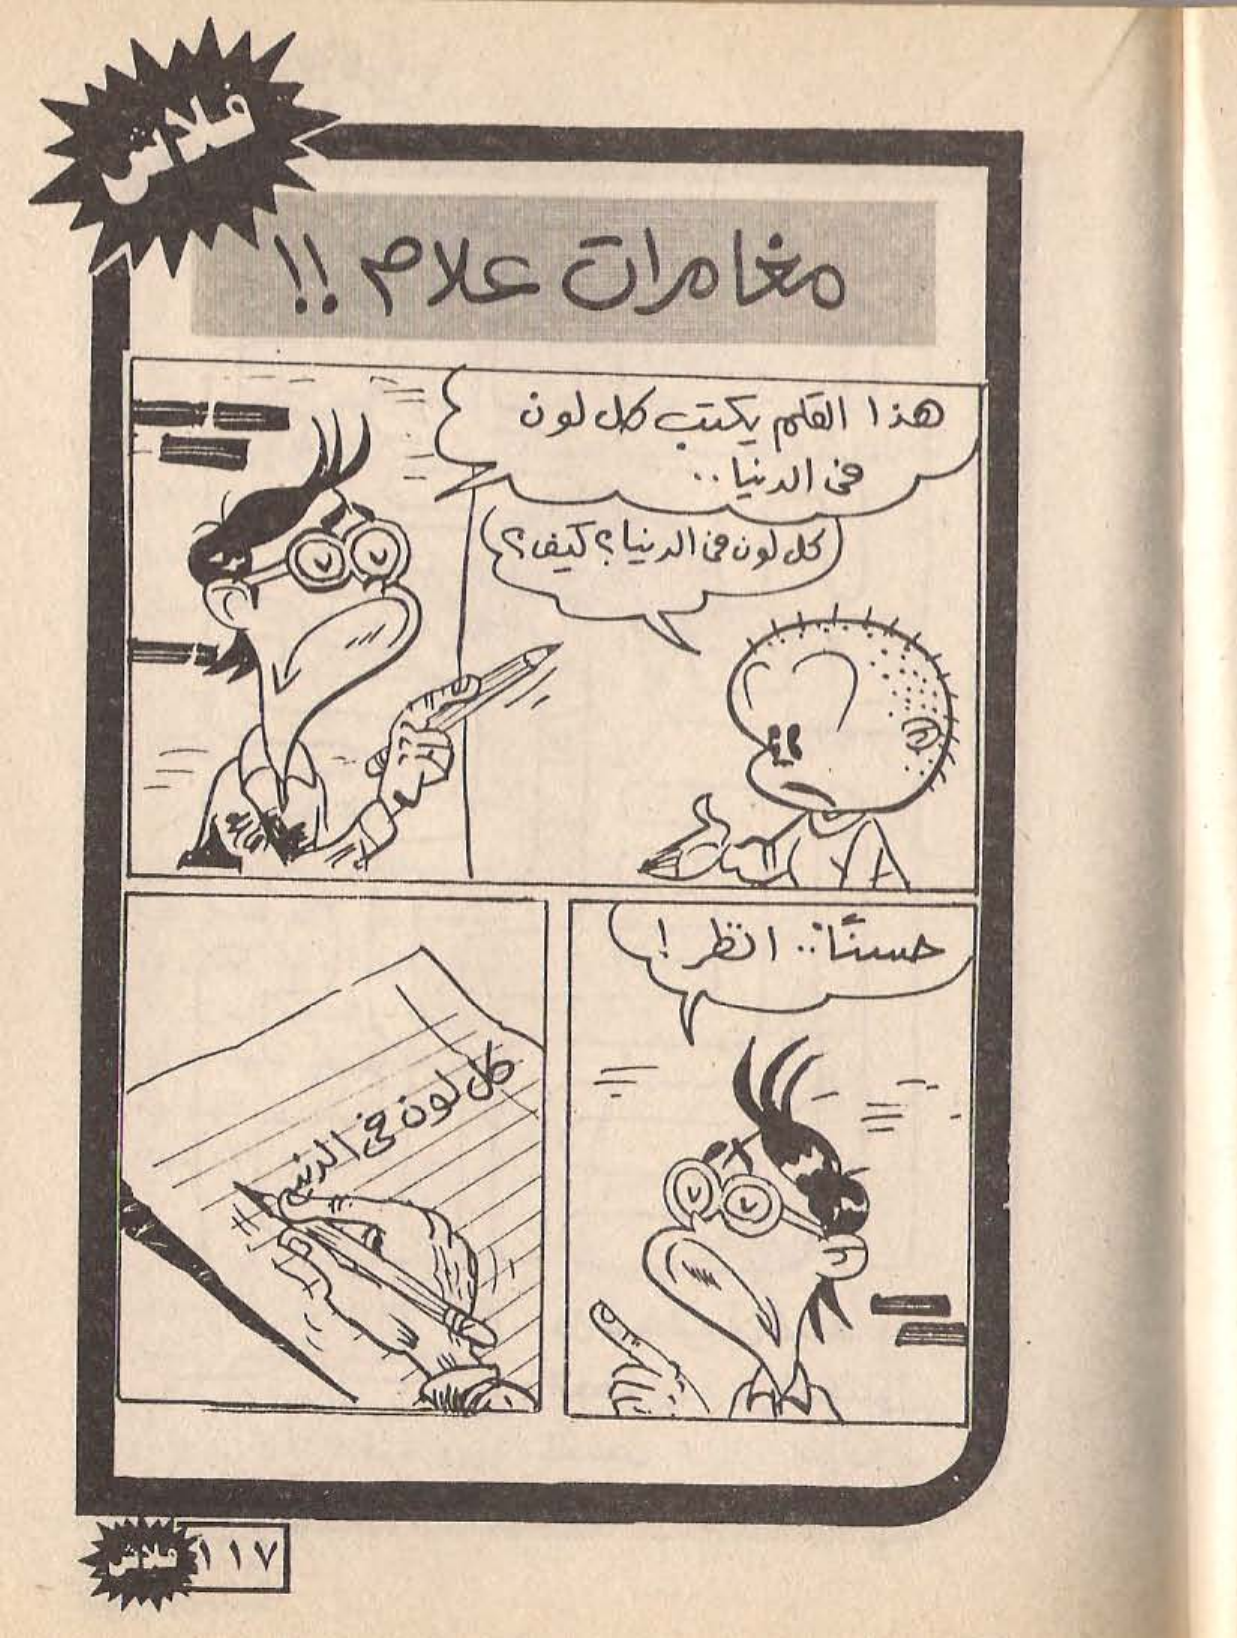 فلاش
مغامرات علام !!
هذا القلم يكتب كل لون
فى الدنيا ..
كل لون فى الدنيا ؟ كيف ؟
حسنًا .. انظر !
كل لون فى الدنيـ
فلاش ١١٧